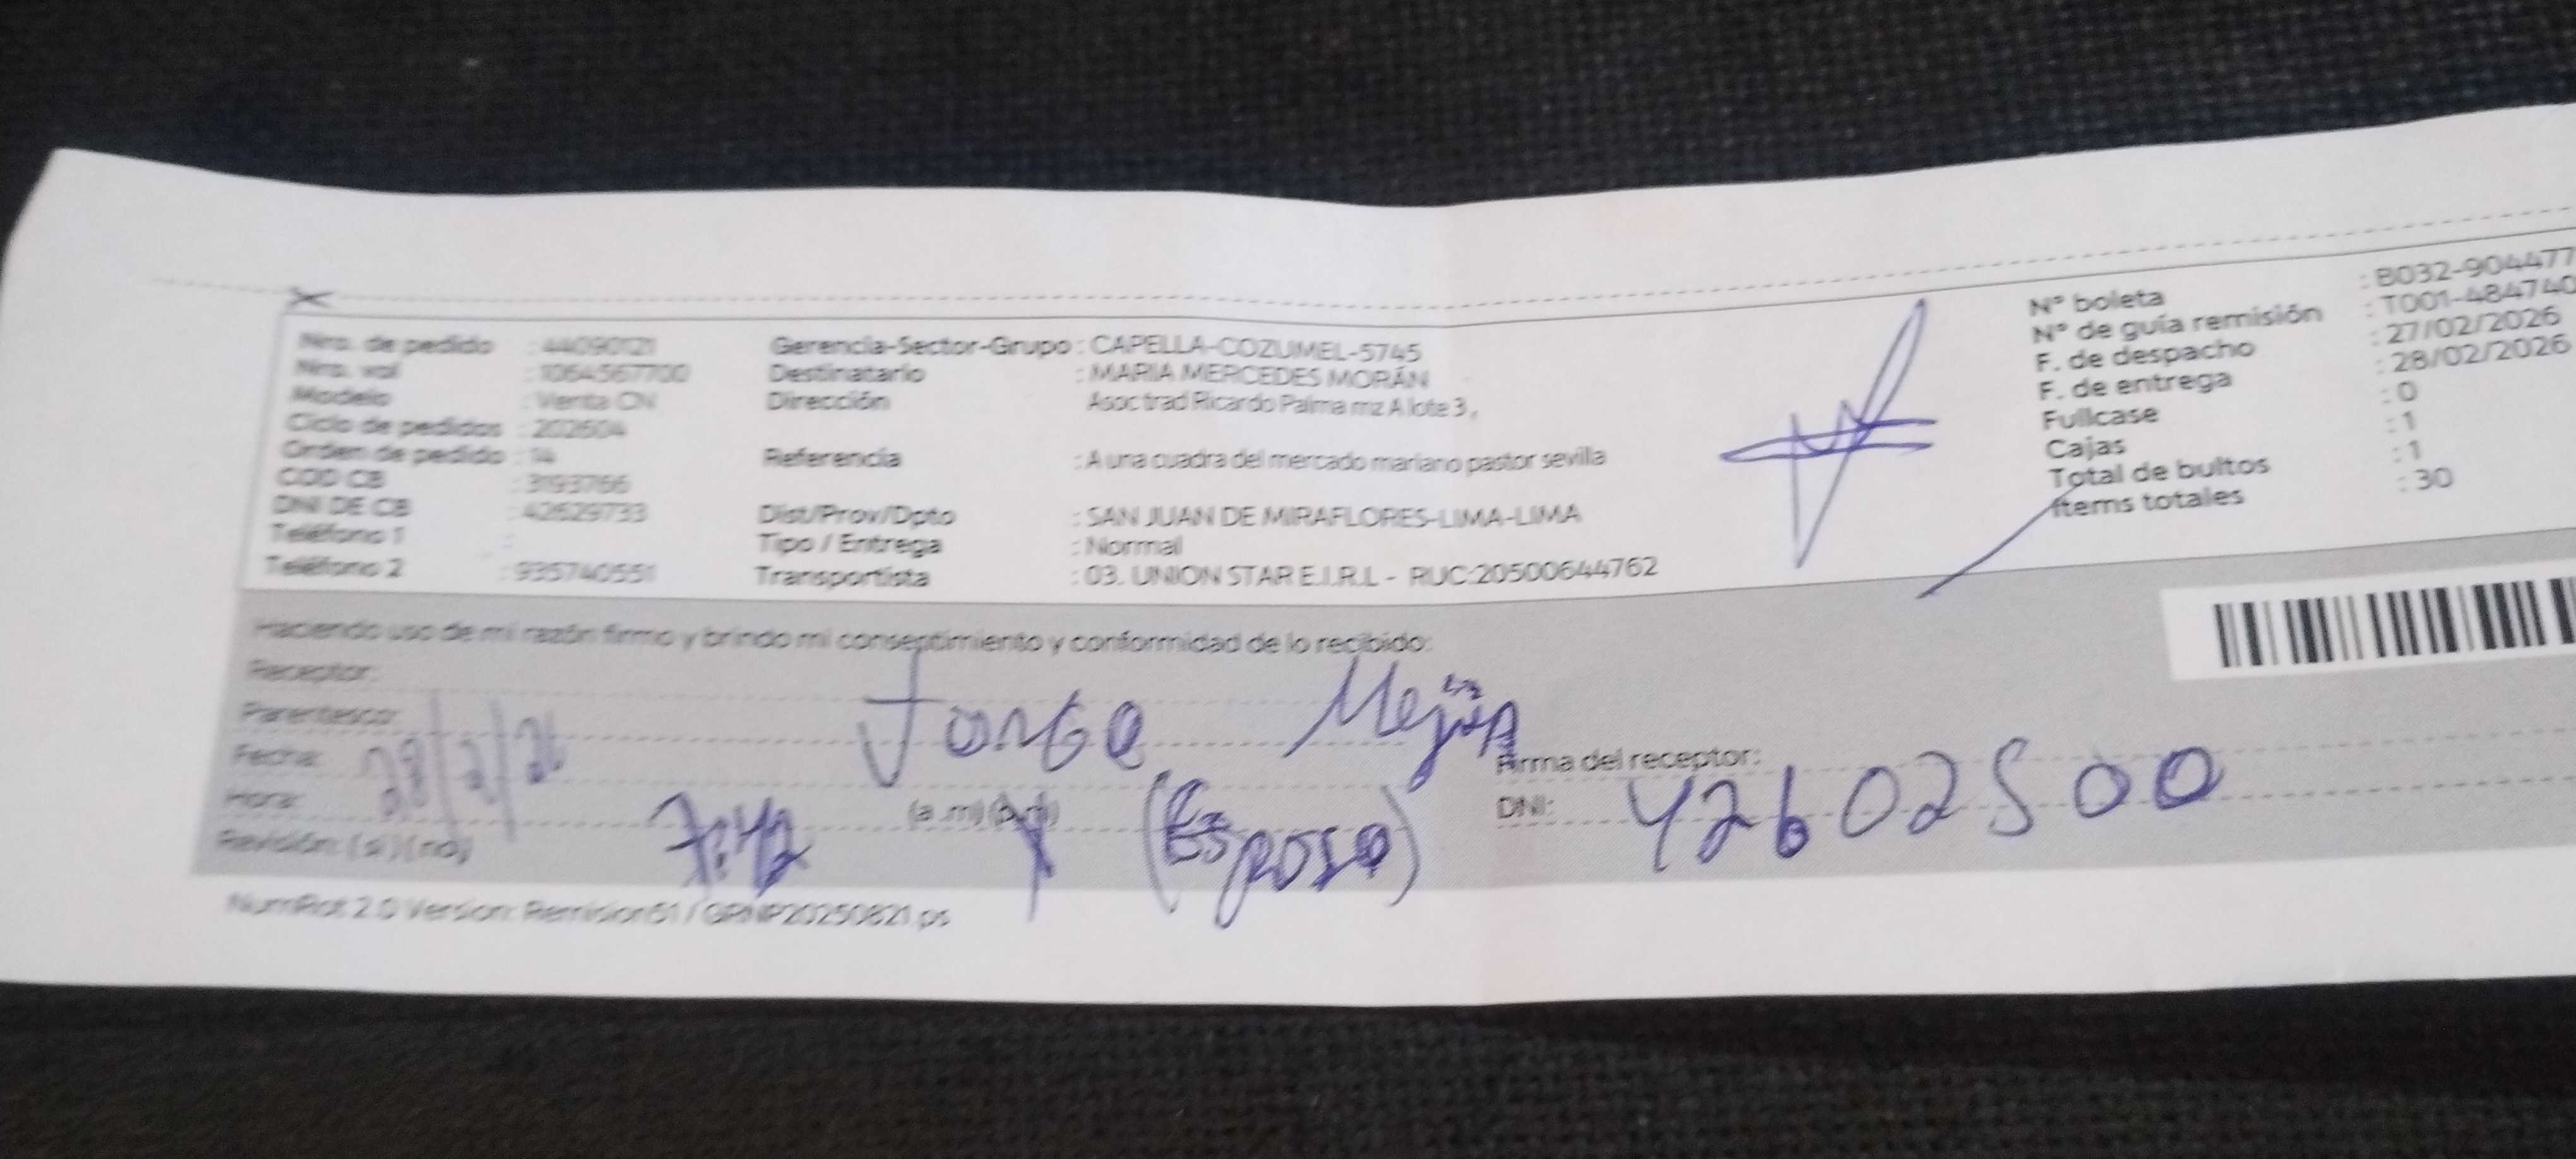 Nro. de pedido : 44090121
Nro. vol : 1064567700
Modelo : Venta CN
Ciclo de pedidos : 202604
Orden de pedido : 14
COD CB : 3193766
DNI DE CB : 42629733
Teléfono 1 :
Teléfono 2 : 935740551
Gerencia-Sector-Grupo : CAPELLA-COZUMEL-5745
Destinatario : MARIA MERCEDES MORÁN
Dirección Asoc trad Ricardo Palma mz A lote 3 ,
Referencia : A una cuadra del mercado mariano pastor sevilla
Dist/Prov/Dpto : SAN JUAN DE MIRAFLORES-LIMA-LIMA
Tipo / Entrega : Normal
Transportista : 03. UNION STAR E.I.R.L - RUC:20500644762
N° boleta : B032-904477
N° de guía remisión : T001-484740
F. de despacho : 27/02/2026
F. de entrega : 28/02/2026
Fullcase : 0
Cajas : 1
Total de bultos : 1
Items totales : 30
Haciendo uso de mi razón firmo y brindo mi consentimiento y conformidad de lo recibido:
Receptor:
Parentesco: Jorge Mejia
Fecha: 28/2/26
Firma del receptor:
Hora: 7:42 (a .m) (p.m) (Esposo)
DNI: 42602500
Revisión: ( si ) ( no )
NumRot 2.0 Version: Remision51 / GRNP20250821.ps